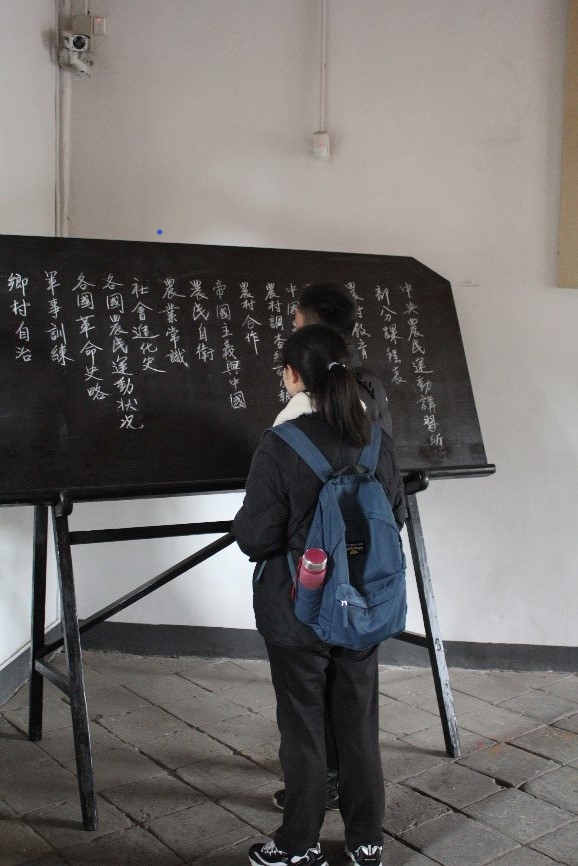 中央農民運動講習所
部分課程表
農村教育
中國
農村調查統計
農村合作
帝國主義與中國
農民自衛
農業常識
社會進化史
各國農民運動狀況
各國革命史略
軍事訓練
鄉村自治